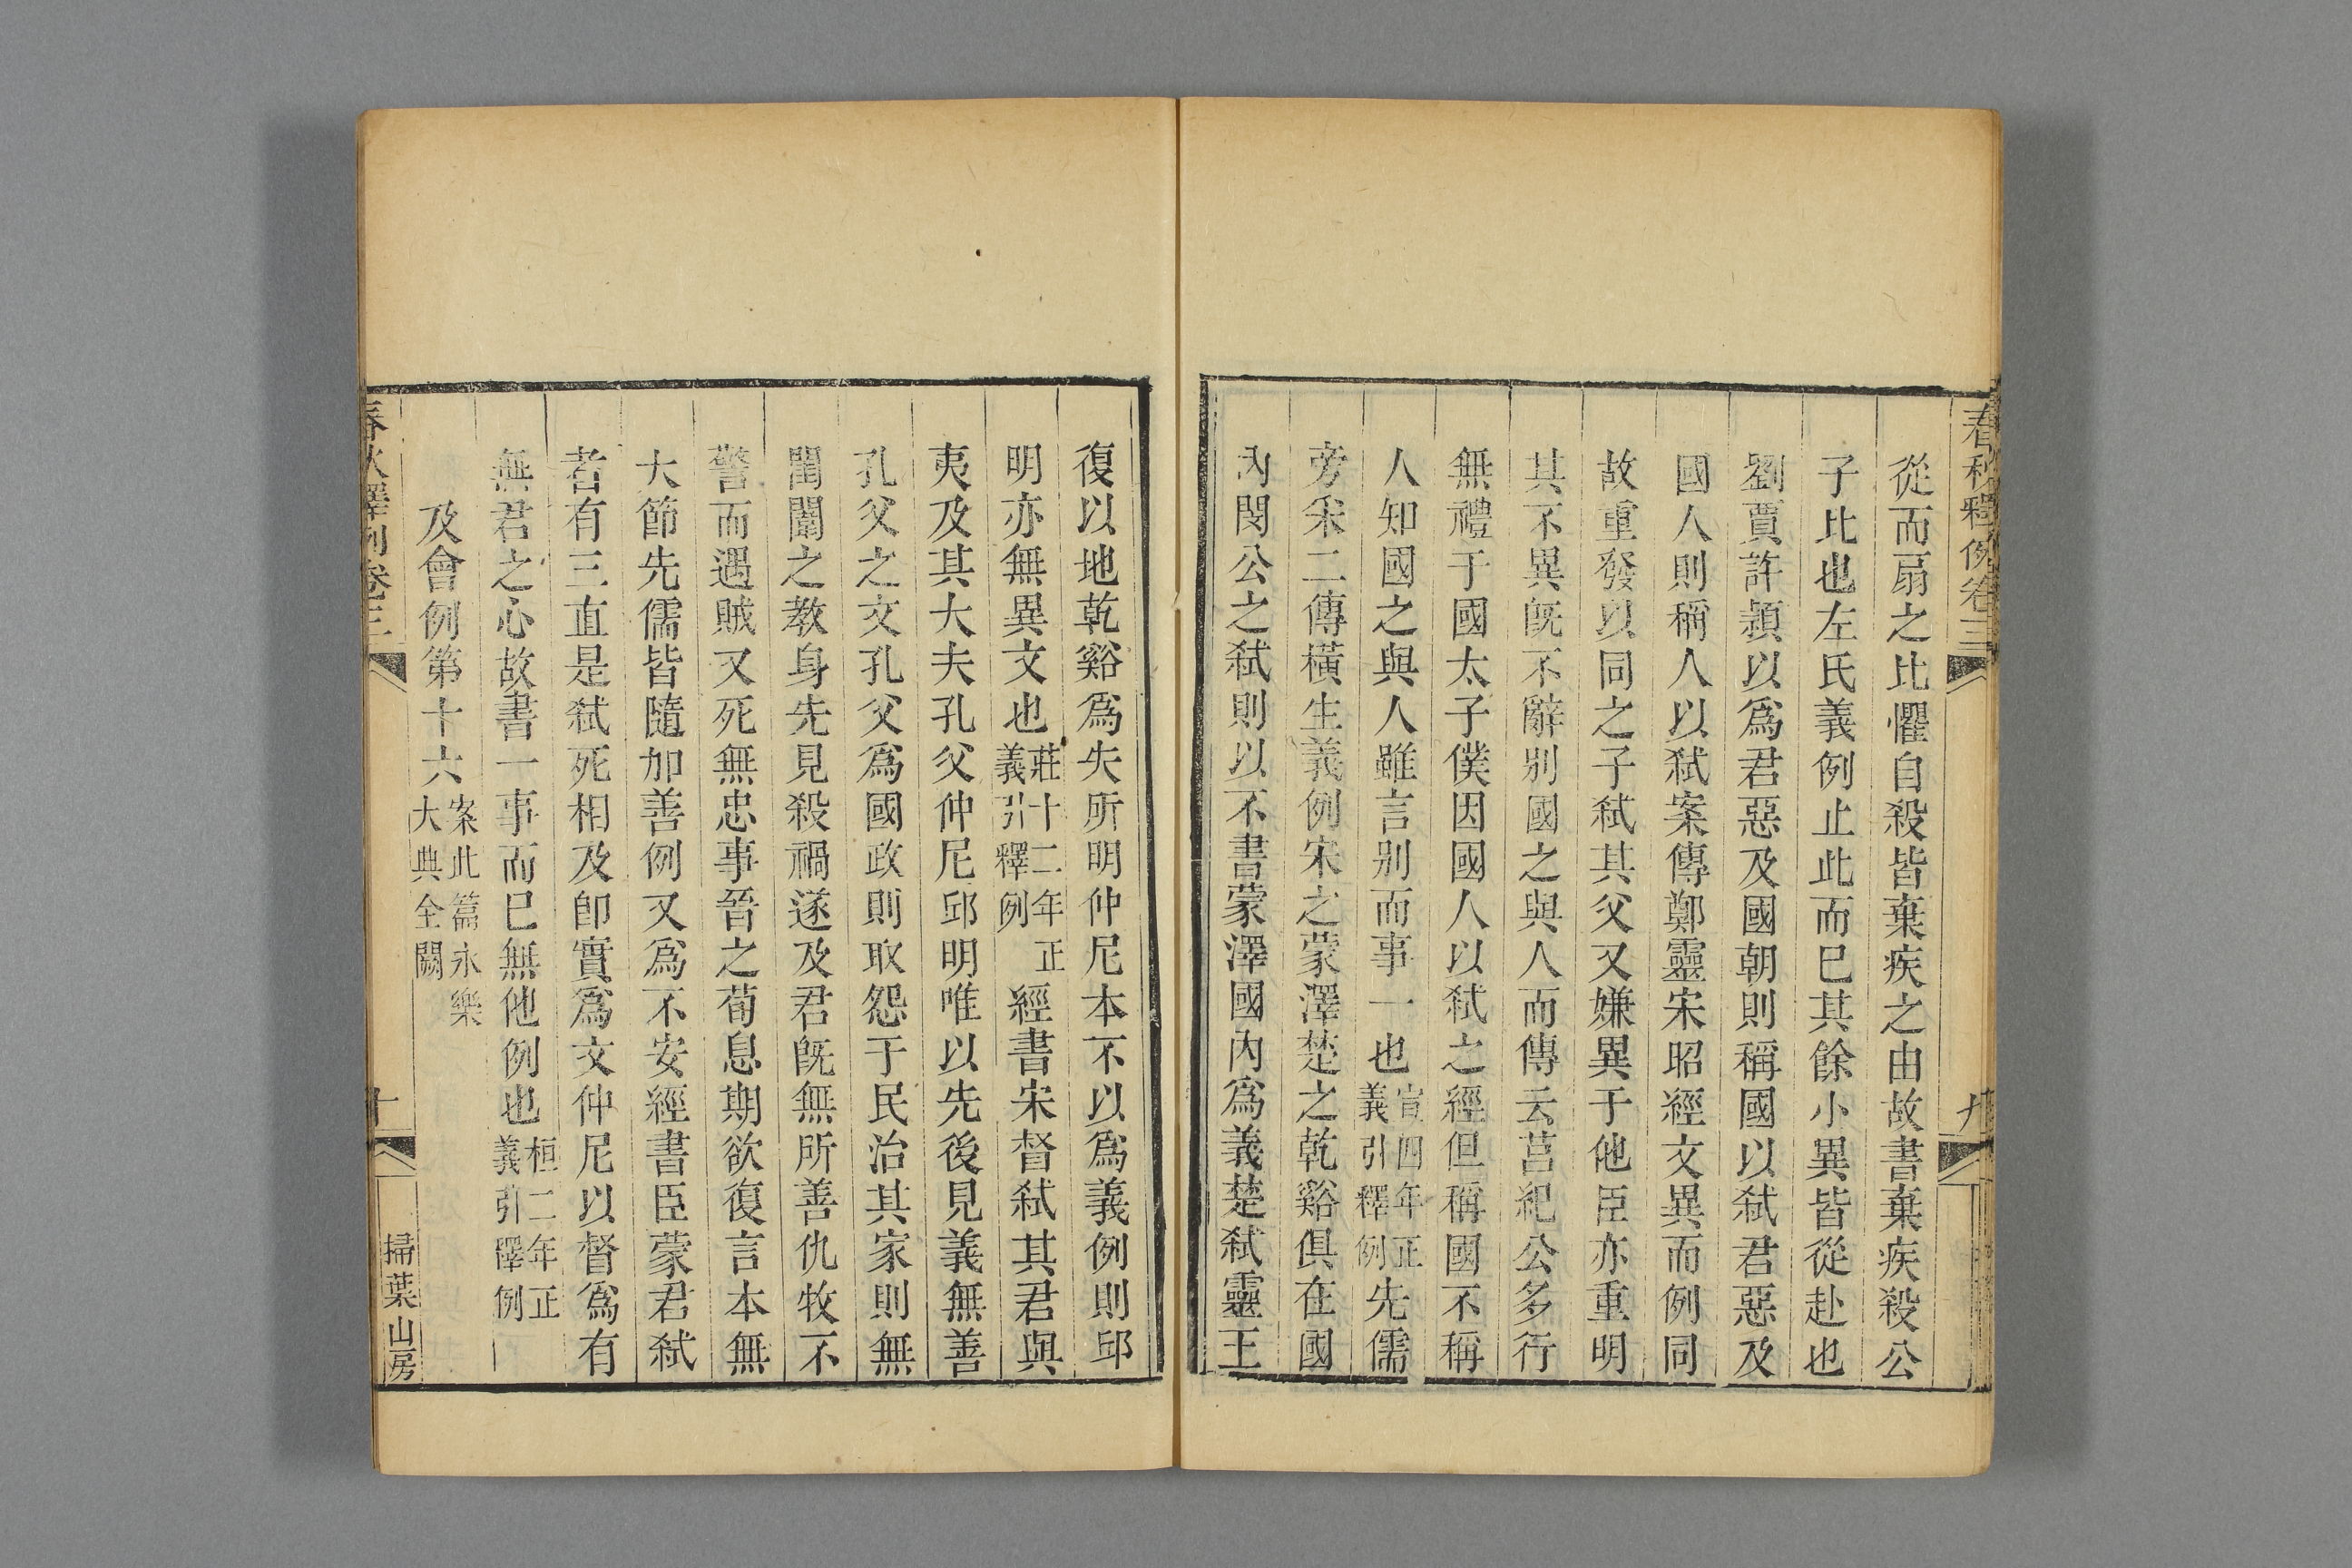 春秋釋例卷三
九
從而扇之比懼自殺皆棄疾之由故書棄疾殺公
子比也左氏義例止此而已其餘小異皆從赴也
劉賈許頴以爲君惡及國朝則稱國以弑君惡及
國人則稱人以弑案傳鄭靈宋昭經文異而例同
故重發以同之子弑其父又嫌異于他臣亦重明
其不異旣不辭別國之與人而傳云莒紀公多行
無禮于國太子僕因國人以弑之經但稱國不稱
人知國之與人雖言別而事一也宣四年正義引釋例先儒
旁采二傳橫生義例宋之蒙澤楚之乾谿俱在國
內閔公之弑則以不書蒙澤國內爲義楚弑靈王
復以地乾谿爲失所明仲尼本不以爲義例則邱
明亦無異文也莊十二年正義引釋例經書宋督弑其君與
夷及其大夫孔父仲尼邱明唯以先後見義無善
孔父之文孔父爲國政則取怨于民治其家則無
閨闈之教身先見殺禍遂及君旣無所善仇牧不
警而遇賊又死無忠事晉之荀息期欲復言本無
大節先儒皆隨加善例又爲不安經書臣蒙君弑
者有三直是弑死相及卽實爲文仲尼以督爲有
無君之心故書一事而已無他例也桓二年正義引釋例
及會例第十六案此篇永樂大典全闕
春秋釋例卷三
十
掃葉山房